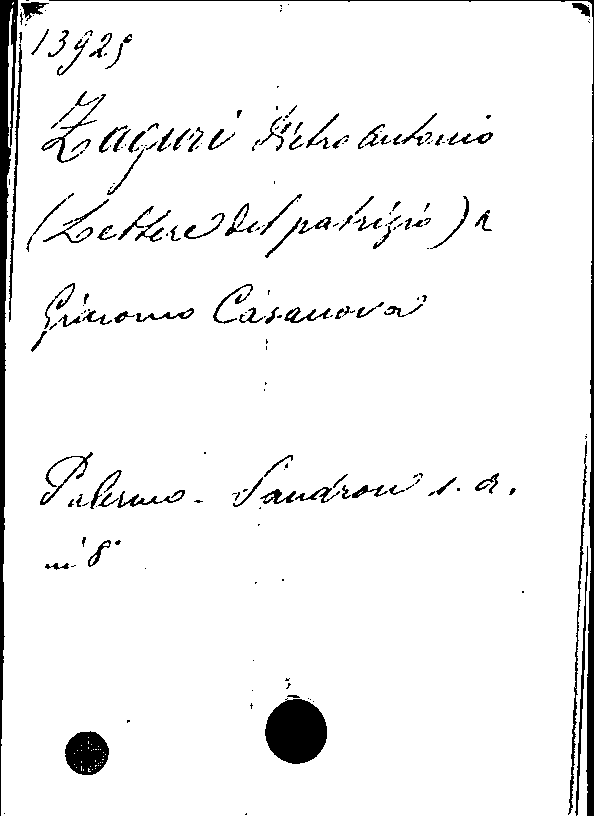 13925
Zaguri Pietro Antonio
(Lettere del patrizio) a
Giacomo Casanova
Palermo - Sandron s. a.
in 8°